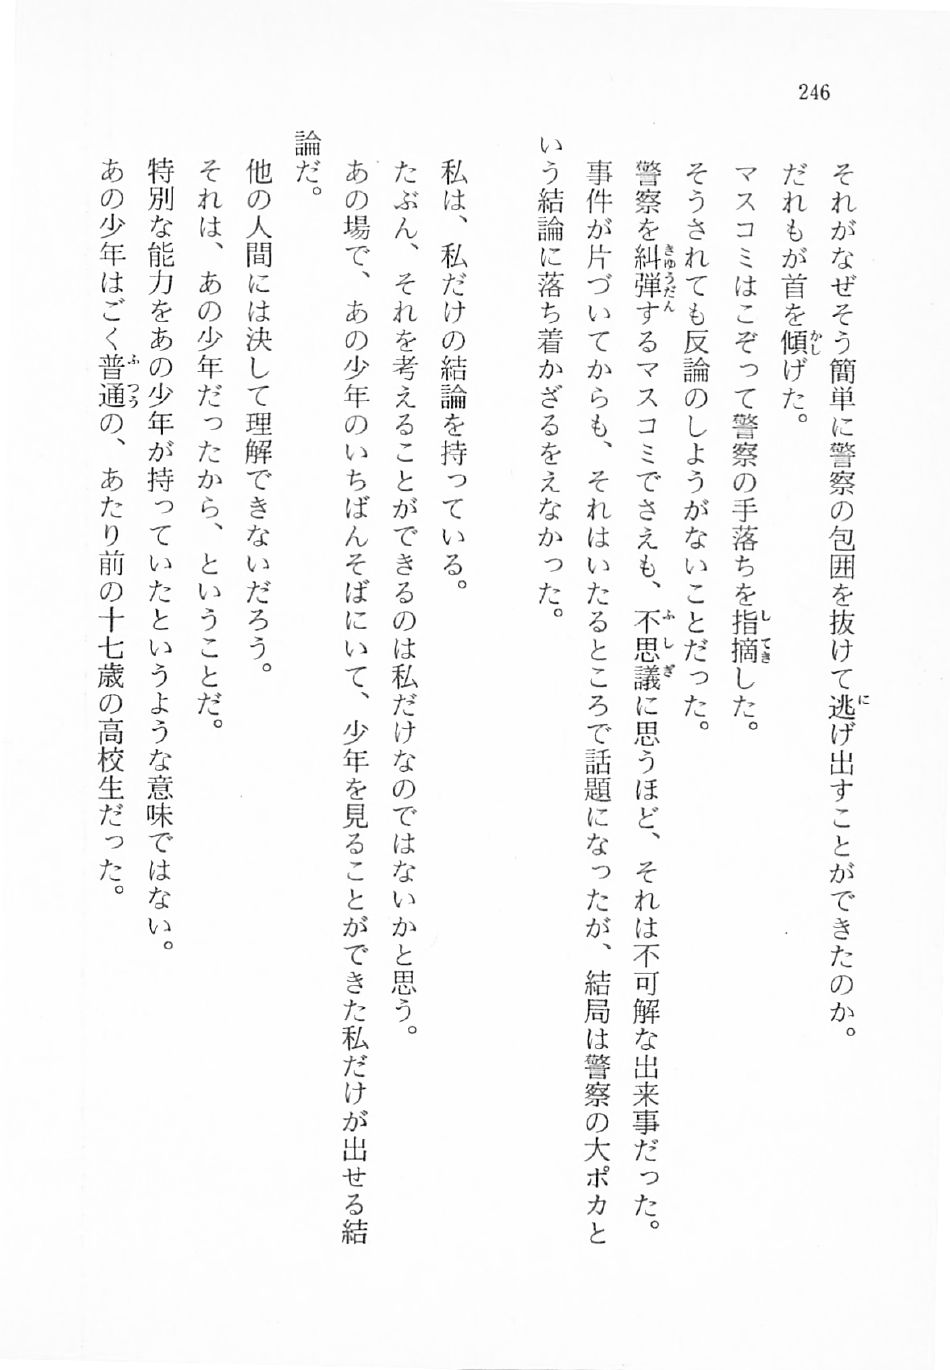 246
それがなぜそう簡単に警察の包囲を抜けて逃げ出すことができたのか。
だれもが首を傾げた。
マスコミはこぞって警察の手落ちを指摘した。
そうされても反論のしようがないことだった。
警察を糾弾するマスコミでさえも、不思議に思うほど、それは不可解な出来事だった。
事件が片づいてからも、それはいたるところで話題になったが、結局は警察の大ポカと
いう結論に落ち着かざるをえなかった。
私は、私だけの結論を持っている。
たぶん、それを考えることができるのは私だけなのではないかと思う。
あの場で、あの少年のいちばんそばにいて、少年を見ることができた私だけが出せる結
論だ。
他の人間には決して理解できないだろう。
それは、あの少年だったから、ということだ。
特別な能力をあの少年が持っていたというような意味ではない。
あの少年はごく普通の、あたり前の十七歳の高校生だった。